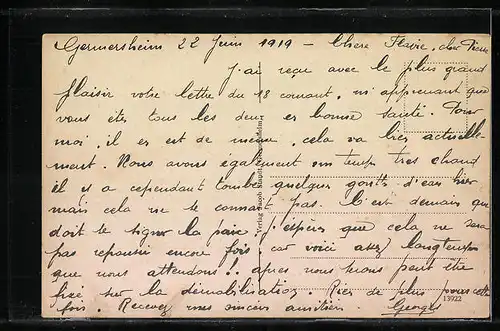 Germersheim 22 Juin 1919 - Chère Flavie, cher Pierre
J'ai reçu avec le plus grand
plaisir votre lettre du 18 courant, m'apprenant que
vous êtes tous les deux en bonne santé. Pour
moi, il en est de même, cela va bien actuelle-
ment. Nous avons également un temps très chaud
il y a cependant tombé quelques goutts d'eau hier
mais cela ne le connait pas. C'est demain que
doit se signer la paix. J'espère que cela ne sera
pas repoussé encore fois, car voici assez longtemps
que nous attendons. après nous serons peut être
fixé sur la démobilisation. Rien de plus pour cette
fois. Recevez mes sincères amitiés. Georges
Verlag Jacob Staudt, Germersheim
13922